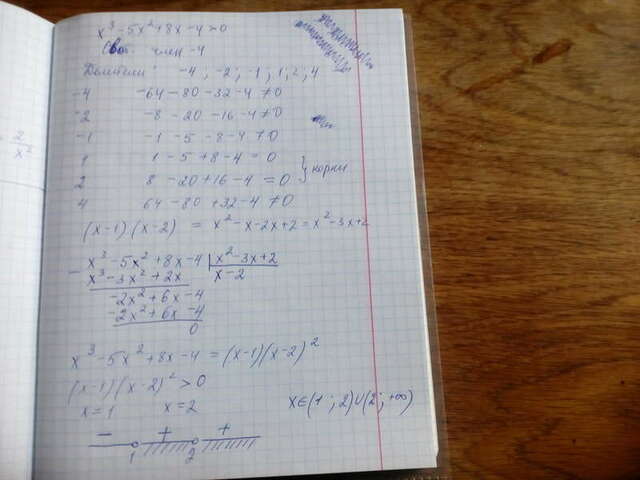 x³-5x²+8x-4>0
Своб. член -4
Делители -4; -2; -1; 1; 2; 4
-4 -64-80-32-4≠0
-2 -8-20-16-4≠0
-1 -1-5-8-4≠0
1 1-5+8-4=0
2 8-20+16-4=0 } корни
4 64-80+32-4≠0
(x-1)(x-2) = x²-x-2x+2=x²-3x+2
- x³-5x²+8x-4 | x²-3x+2
x³-3x²+2x x-2
-2x²+6x-4
-2x²+6x-4
0
x³-5x²+8x-4=(x-1)(x-2)²
(x-1)(x-2)²>0
x=1 x=2 x∈(1;2)∪(2;+∞)
- + +
1 2
2
x²